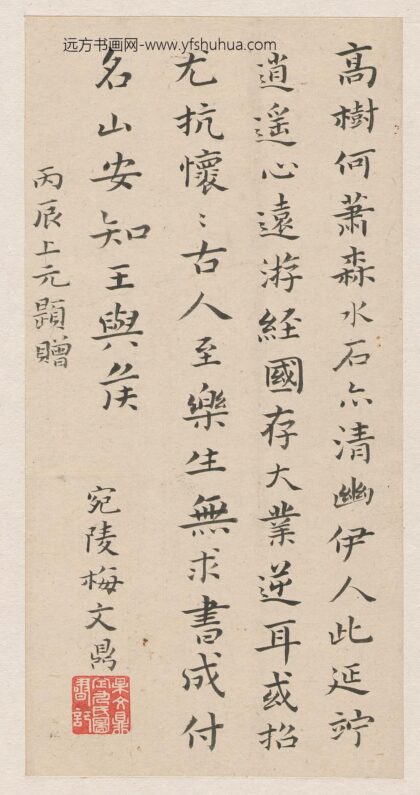 远方书画网-www.yfshuhua.com
高樹何蕭森水石亦清幽伊人此延竚
逍遥心遠游経國存大業逆耳或招
尤抗懷〻古人至樂生無求書成付
名山安知王與侯
丙辰上元題贈
宛陵梅文鼎